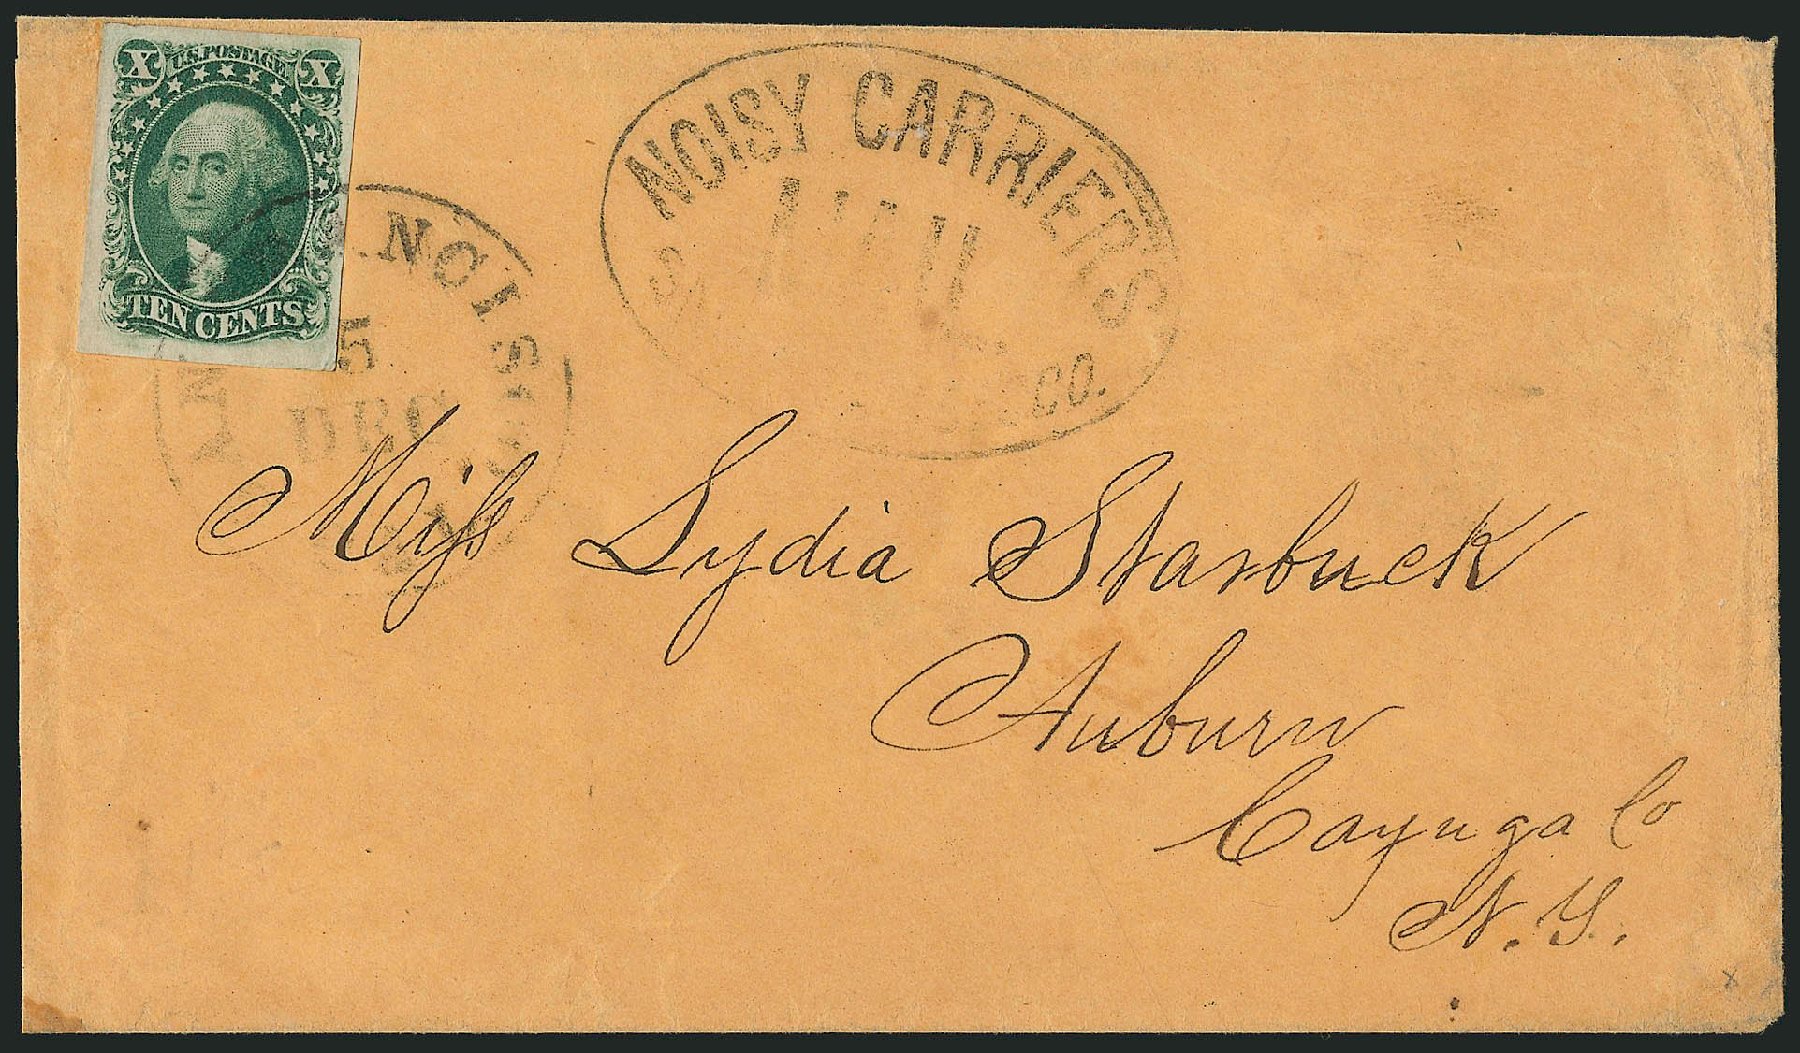 X U.S. POSTAGE X
TEN CENTS
NOISY CARRIER'S
MAIL
CO.
5
DEC
Miss Lydia Starbuck
Auburn
Cayuga Co
N. Y.